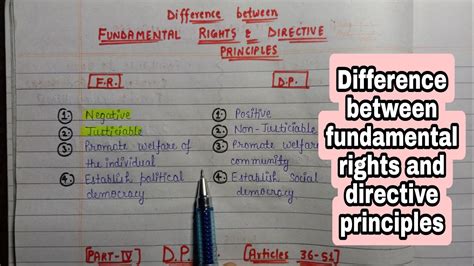 Difference between
FUNDAMENTAL RIGHTS & DIRECTIVE
PRINCIPLES
F.R.
① Negative
② Justiciable
③ Promote welfare of
the individual
④ Establish political
democracy
D.P.
① Positive
② Non-Justiciable
③ Promote welfare
community
④ Establish social
democracy
[PART-IV] D.P. [Articles 36-51]
Difference
between
fundamental
rights and
directive
principles